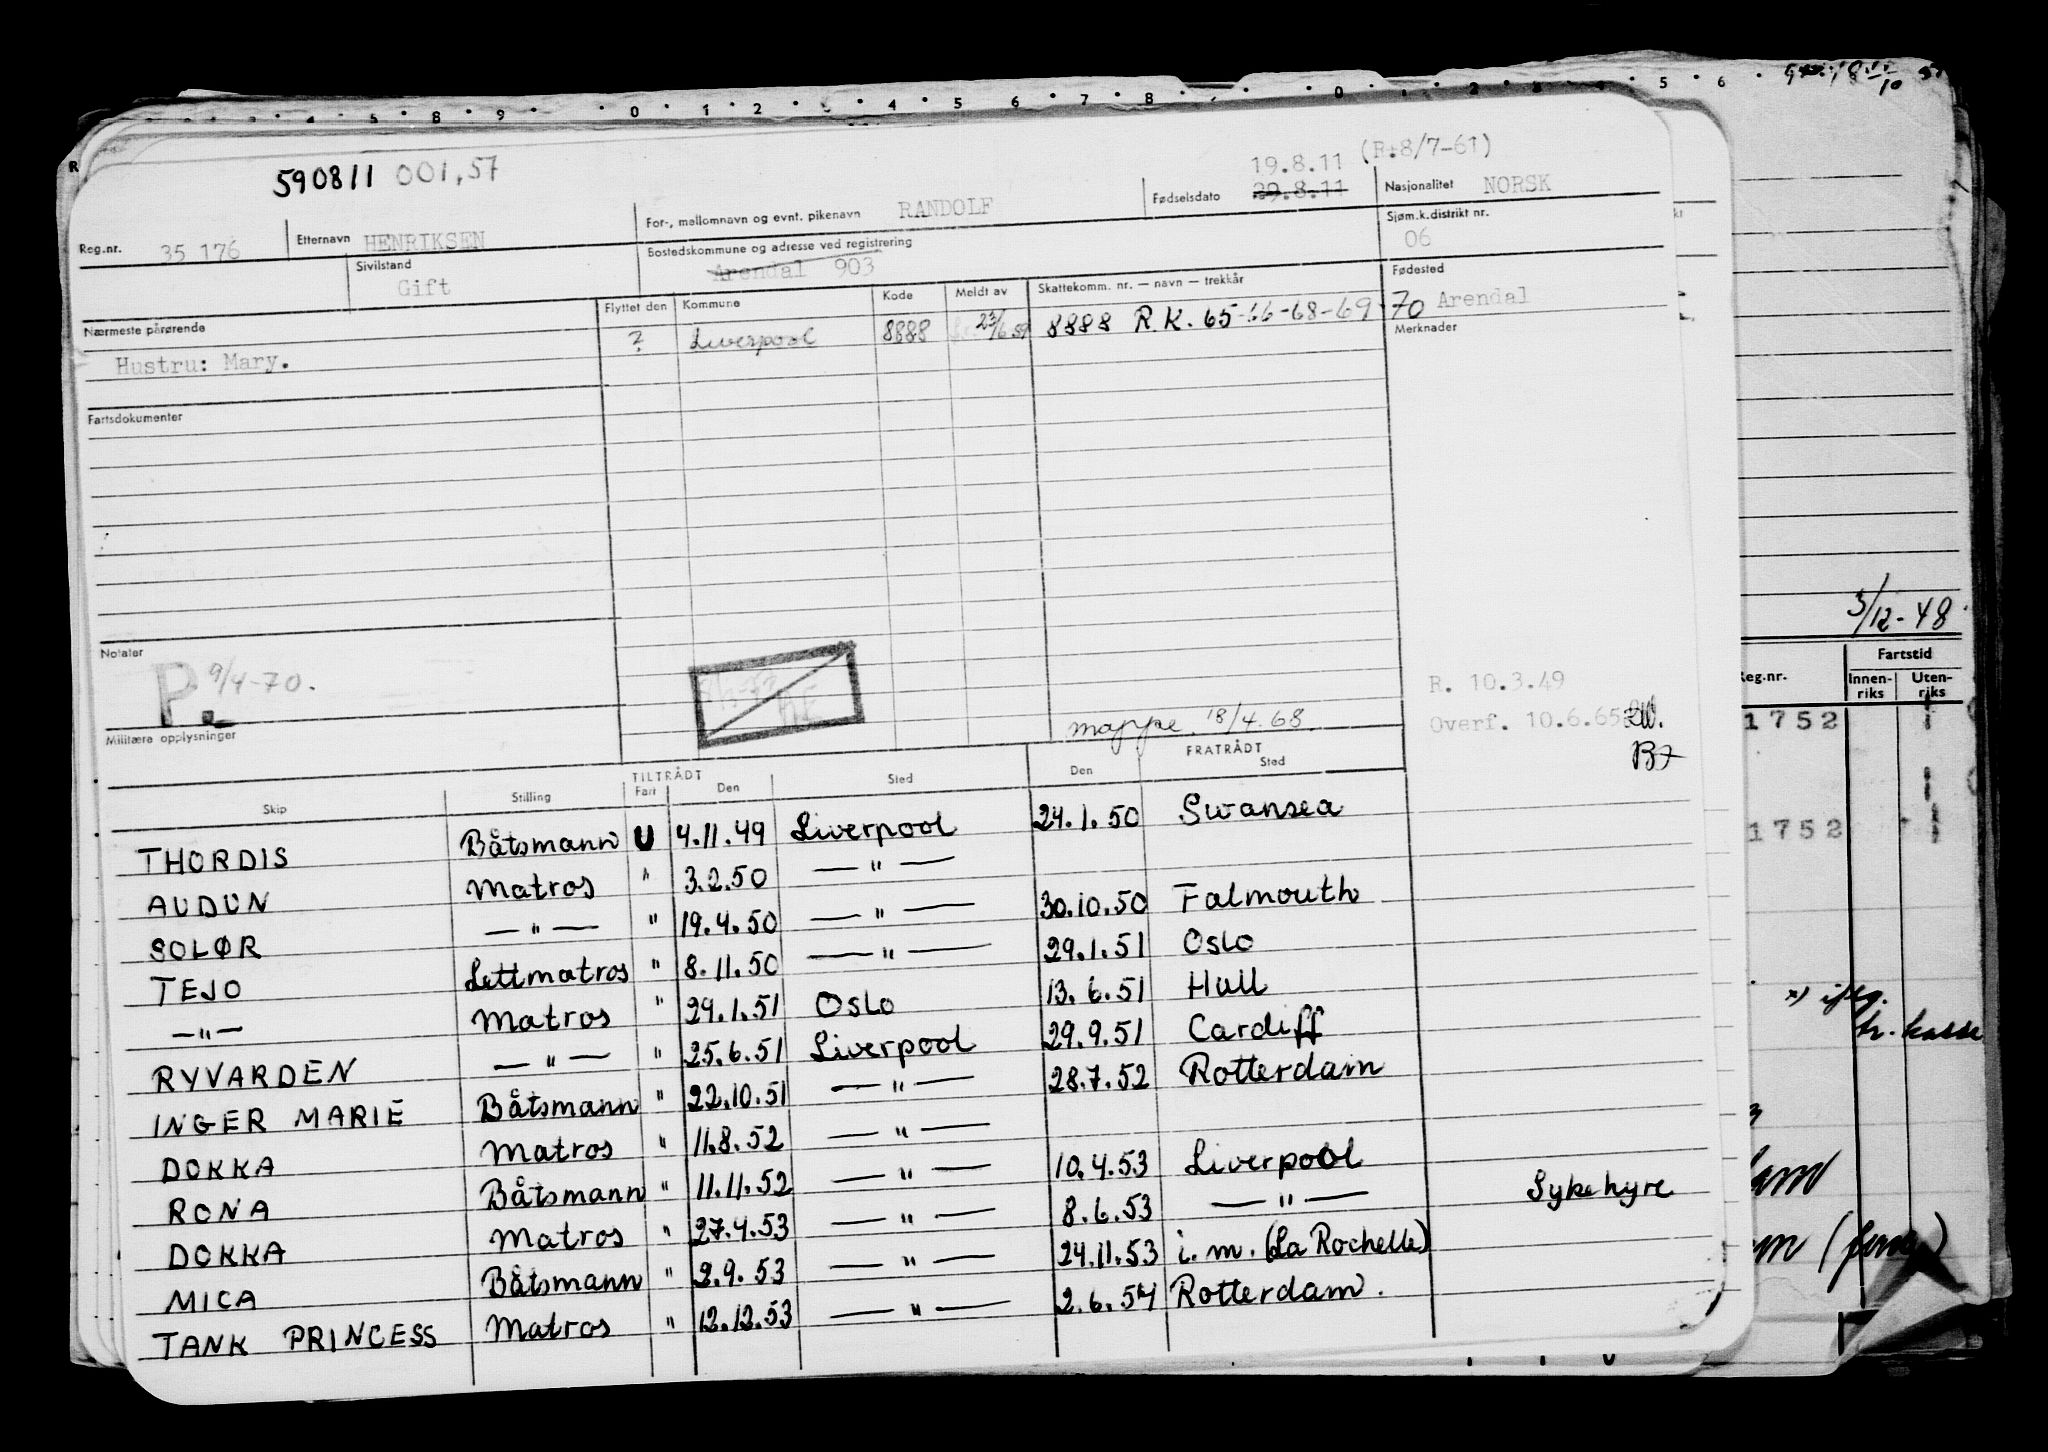 590811 001,57
19.8.11 (R:8/7-61)
Reg.nr. 35 176 Etternavn HENRIKSEN For-, mellomnavn og evnt. pikenavn RANDOLF Fødselsdato 29.8.11 Nasjonalitet NORSK
Sivilstand Gift Bostedskommune og adresse ved registrering Arendal 903 Sjøm.k.distrikt nr. 06
Nærmeste pårørende Flyttet den Kommune Kode Meldt av Skattekomm. nr. — navn — trekkår Fødested Arendal
Hustru: Mary. ? Liverpool 8888 23/6 59 8888 R.K. 65-66-68-69-70 Merknader
Fartsdokumenter
Notater
P. 9/4-70.
R. 10.3.49
mappe 18/4.68. Overf. 10.6.65
Militære opplysninger
TILTRÅDT FRATRÅDT
Skip Stilling Fart Den Sted Den Sted
THORDIS Båtsmann U 4.11.49 Liverpool 24.1.50 Swansea
AUDUN Matros " 3.2.50 — " —
SOLØR — " — " 19.4.50 — " — 30.10.50 Falmouth
TEJO Lettmatros " 8.11.50 — " — 29.1.51 Oslo
— " — Matros " 29.1.51 Oslo 13.6.51 Hull
RYVARDEN — " — " 25.6.51 Liverpool 29.9.51 Cardiff
INGER MARIE Båtsmann " 22.10.51 — " — 28.7.52 Rotterdam
DOKKA Matros " 11.8.52 — " —
RONA Båtsmann " 11.11.52 — " — 10.4.53 Liverpool
DOKKA Matros " 27.4.53 — " — 8.6.53 — " — Sykehyre
MICA Båtsmann " 2.9.53 — " — 24.11.53 i.m. (La Rochelle)
TANK PRINCESS Matros " 12.12.53 — " — 2.6.54 Rotterdam.
5/12-48
Reg.nr. Fartstid
Innen-riks Uten-riks
1752
1752